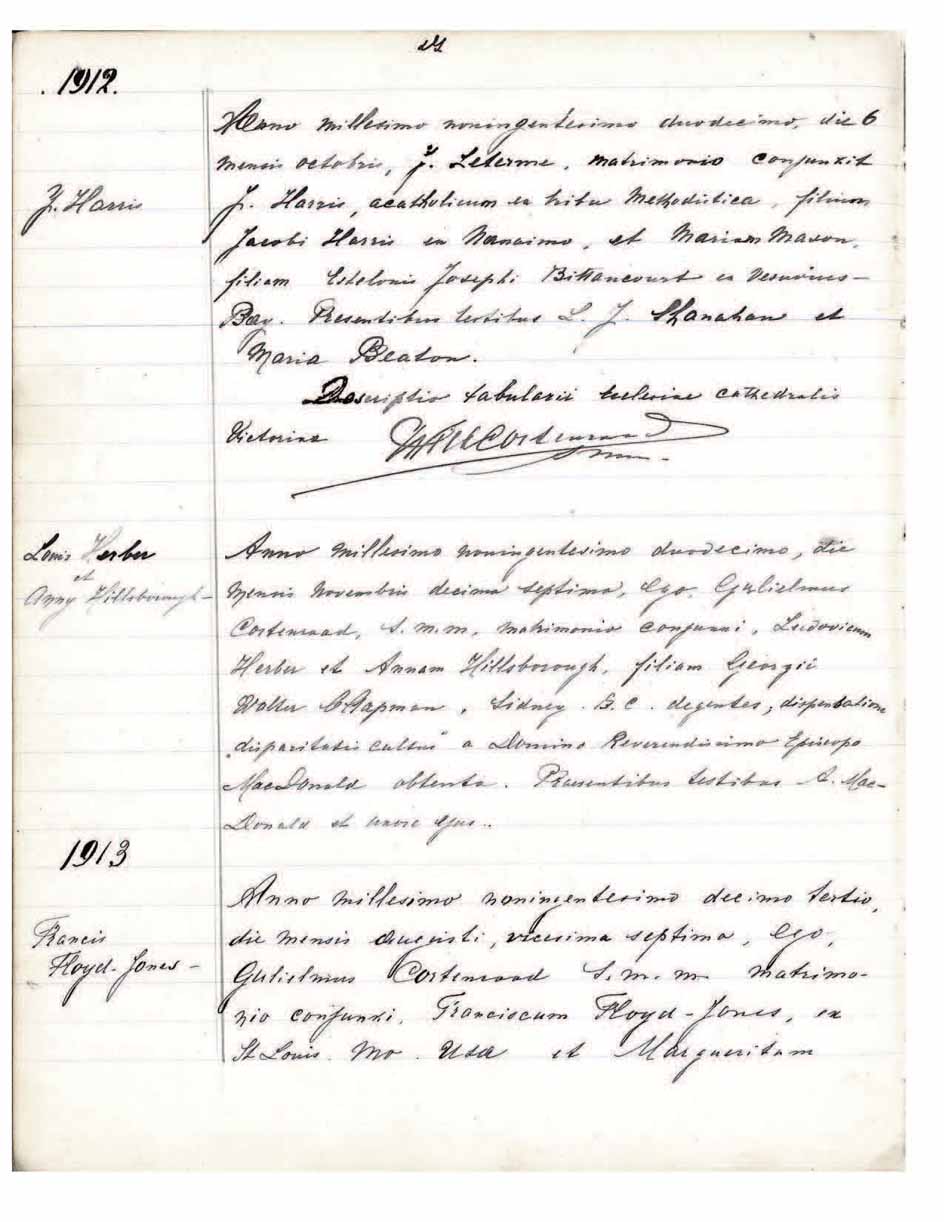 21
1912.
J. Harris
Anno millesimo noningentesimo duodecimo, die 6
mensis octobris, J. Leterme, matrimonio conjunxit
J. Harris, acatholicum ex tribu Methodistica, filium
Jacobi Harris ex Nanaimo, et Mariam Mason,
filiam Estelonis Josephi Bittancourt ex Vesuvius-
Bay. Presentibus testibus L. J. Shanahan et
Maria Beaton.
Descriptio tabularii ecclesiae cathedralis
Victoriae
Louis Herber
et
Anny Hillsborough-
Anno millesimo noningentesimo duodecimo, die
mensis Novembris decima septima, Ego, Gulielmus
Cortenraad, S.m.m. matrimonio conjunxi, Ludovicum
Herber et Annam Hillsborough, filiam Georgii
Walter Chapman, Sidney. B.C. degentes, dispensatione
"disparitatis cultus" a Domino Reverendissimo Episcopo
MacDonald obtenta. Praesentibus testibus A. Mac-
Donald et uxore ejus.
1913
Francis
Floyd-Jones-
Anno millesimo noningentesimo decimo tertio,
die mensis Augusti, vicesima septima, Ego,
Gulielmus Cortenraad S.m.m. matrimo-
nio conjunxi, Franciscum Floyd-Jones, ex
St Louis. Mo. Usa et Margueritam